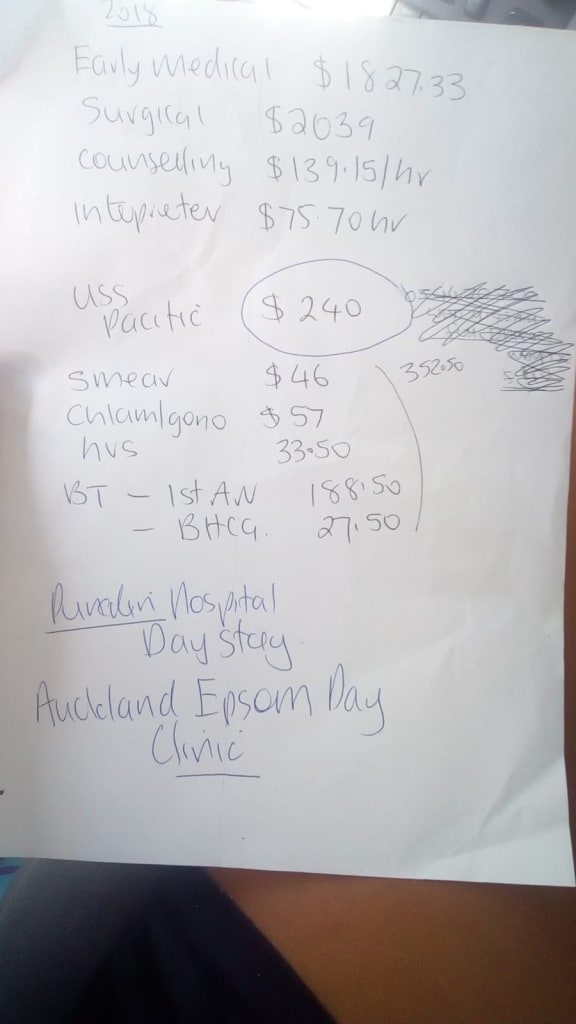 2018
Early Medical $1827.33
Surgical $2039
Counselling $139.15/hr
Intepreter $75.70 hr
USS
Pacific $240
Smear $46 352.50
Chlam/gono $57
hvs 33.50
BT - 1st AN 188.50
- BHCG. 27.50
Hospital
Day Stay
Auckland Epsom Day
Clinic